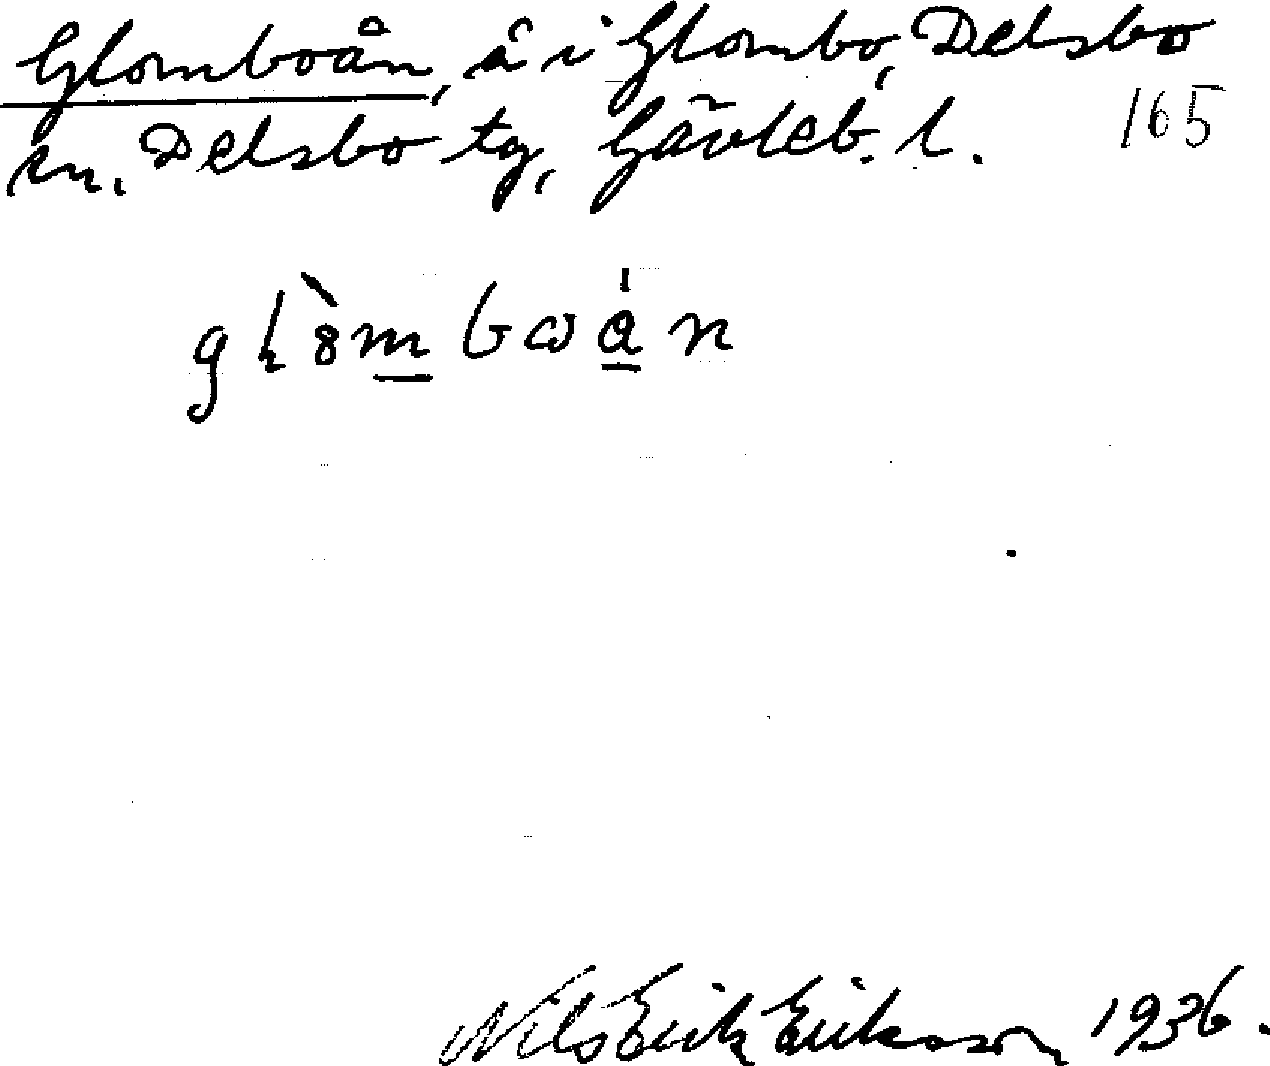 Glomboån, å i Glombo, Delsbo
sn. Delsbo tg, Gävleb. l. 165
Nils Erik Eriksson 1936.